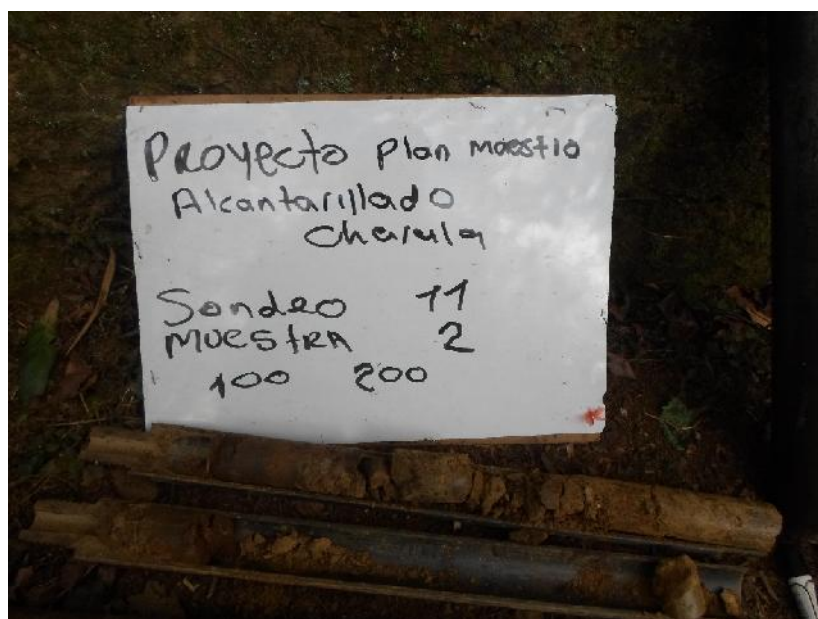 Proyecto Plan maestro
Alcantarillado
Sondeo 11
Muestra 2
100 200